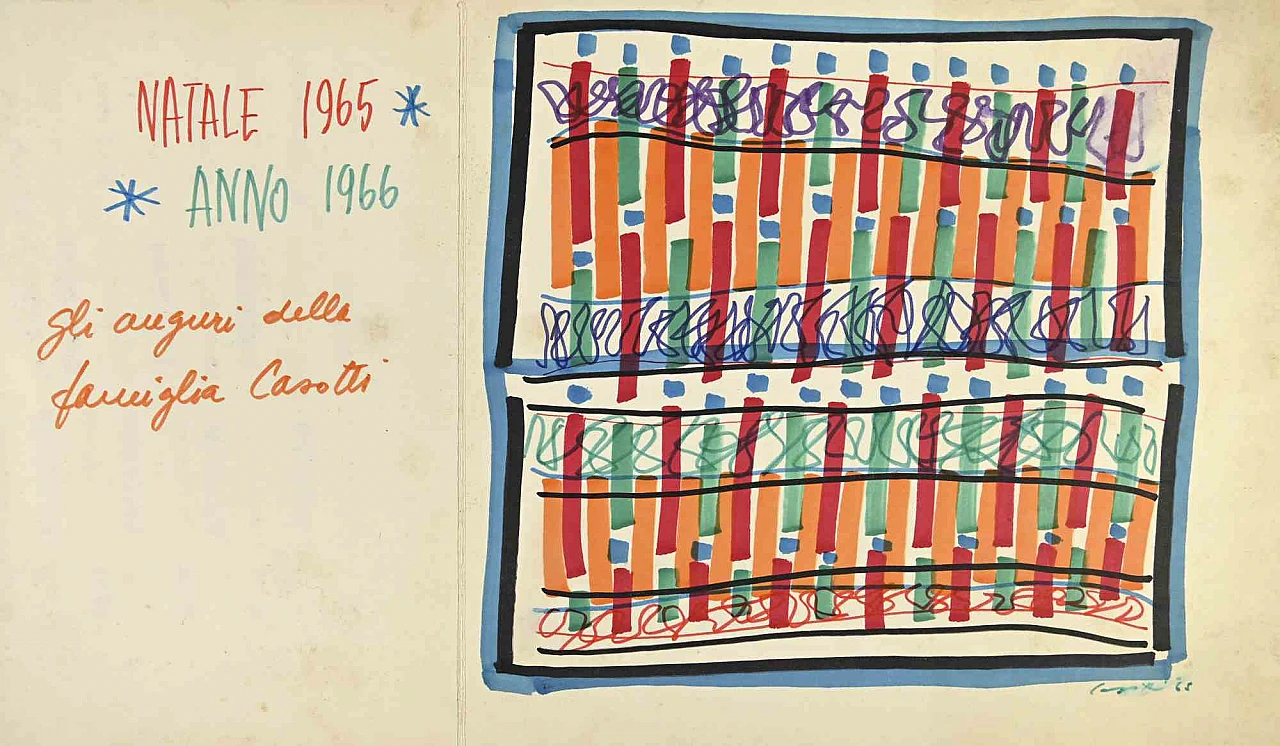 NATALE 1965
ANNO 1966
gli auguri della
famiglia Casotti